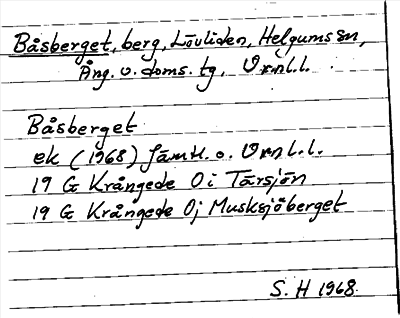 Båsberget, berg, Lövliden, Helgums sn,
Ång. v. doms. tg, Vrnl.l.
Båsberget
ek (1968) Jämtl. o. Vrnl.l.
19 G Krångede 0i Tärsjön
19 G Krångede 0j Musksjöberget
S. H 1968